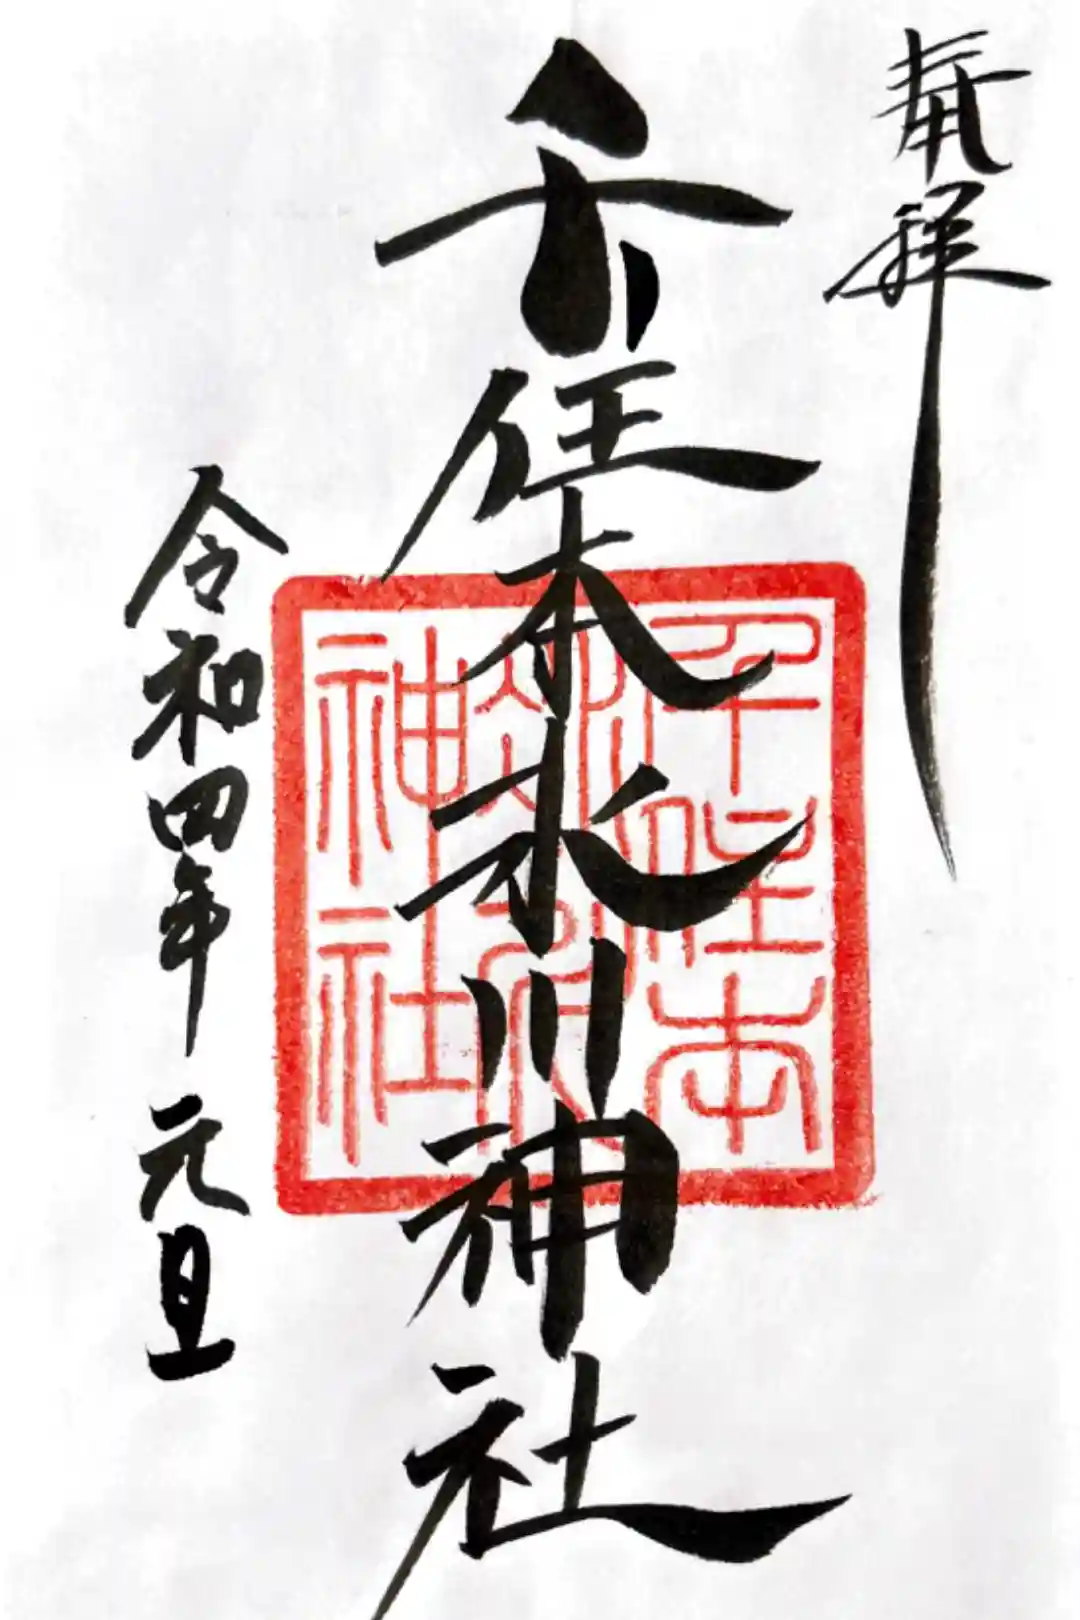 奉拝
千住本氷川神社
令和四年 元旦
千住本
氷川
神社